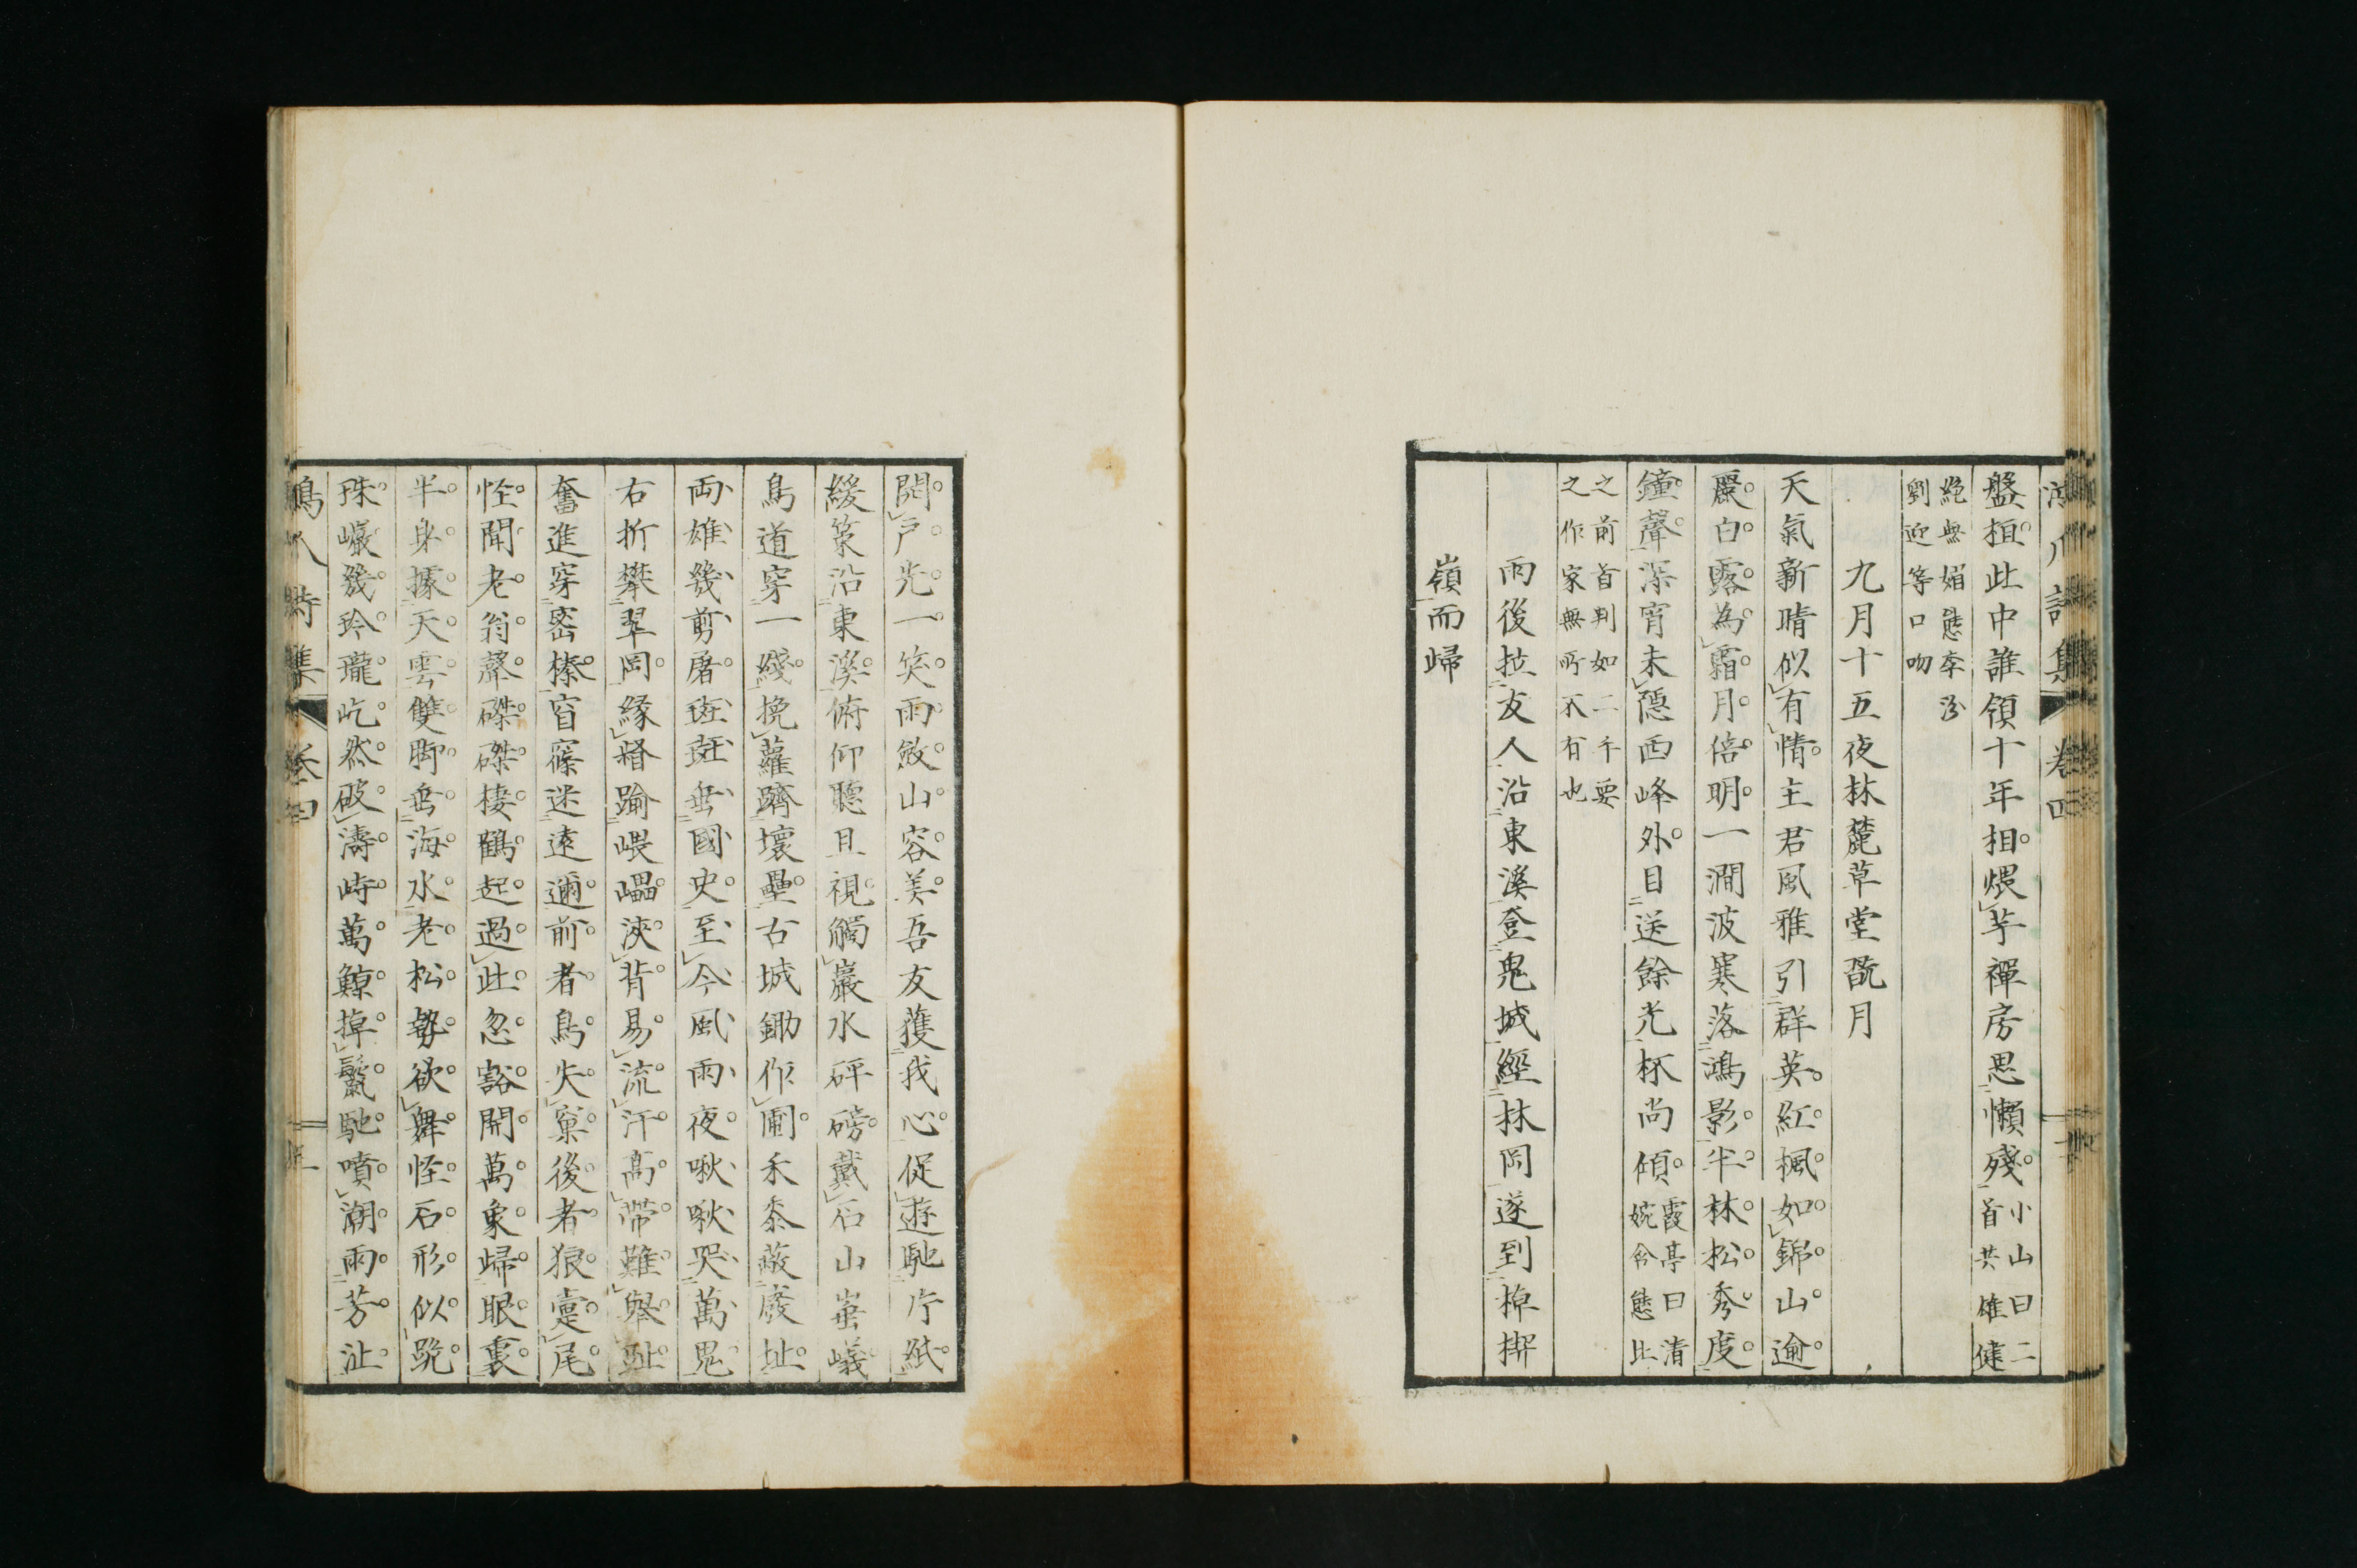 盤桓此中誰領十年相煨芋禪房思懶殘小山曰二
首共雄健
絶無媚態李汾
劉迎等口吻
九月十五夜林麓草堂翫月
天氣新晴似有情主君風雅引群英紅楓如錦山逾
麗白露為霜月倍明一澗波寒落鴻影半林松秀度
鐘聲深宵未隱西峰外目送餘光杯尚傾霞亭曰清
婉令態比
之前首判如二手要
之作家無所不有也
雨後拉友人沿東溪登鬼城經林岡遂到棹搟
嶺而歸
開戶先一笑雨斂山容美吾友獲我心促遊馳片紙
緩策沿東溪俯仰聽且視觸巖水砰磅戴石山崔嶬
鳥道穿一綫挽蘿躋壞壘古城鋤作圃禾黍蔽廢址
兩雄幾剪屠斑斑垂國史至今風雨夜啾啾哭萬鬼
右折攀翠岡緣磴踰嵔㠥浹背易流汗高帶難舉趾
奮進穿密榛窅窱迷遠邇前者鳥失窠後者狼疐尾
怪聞老翁聲磔磔棲鶴起過此忽豁開萬象歸眼裏
半身據天雲雙脚垂海水老松勢欲舞怪石形似跪
珠巘幾玲瓏屹然破濤峙萬鯨掉鬣馳噴潮雨芳沚
詩集 卷四